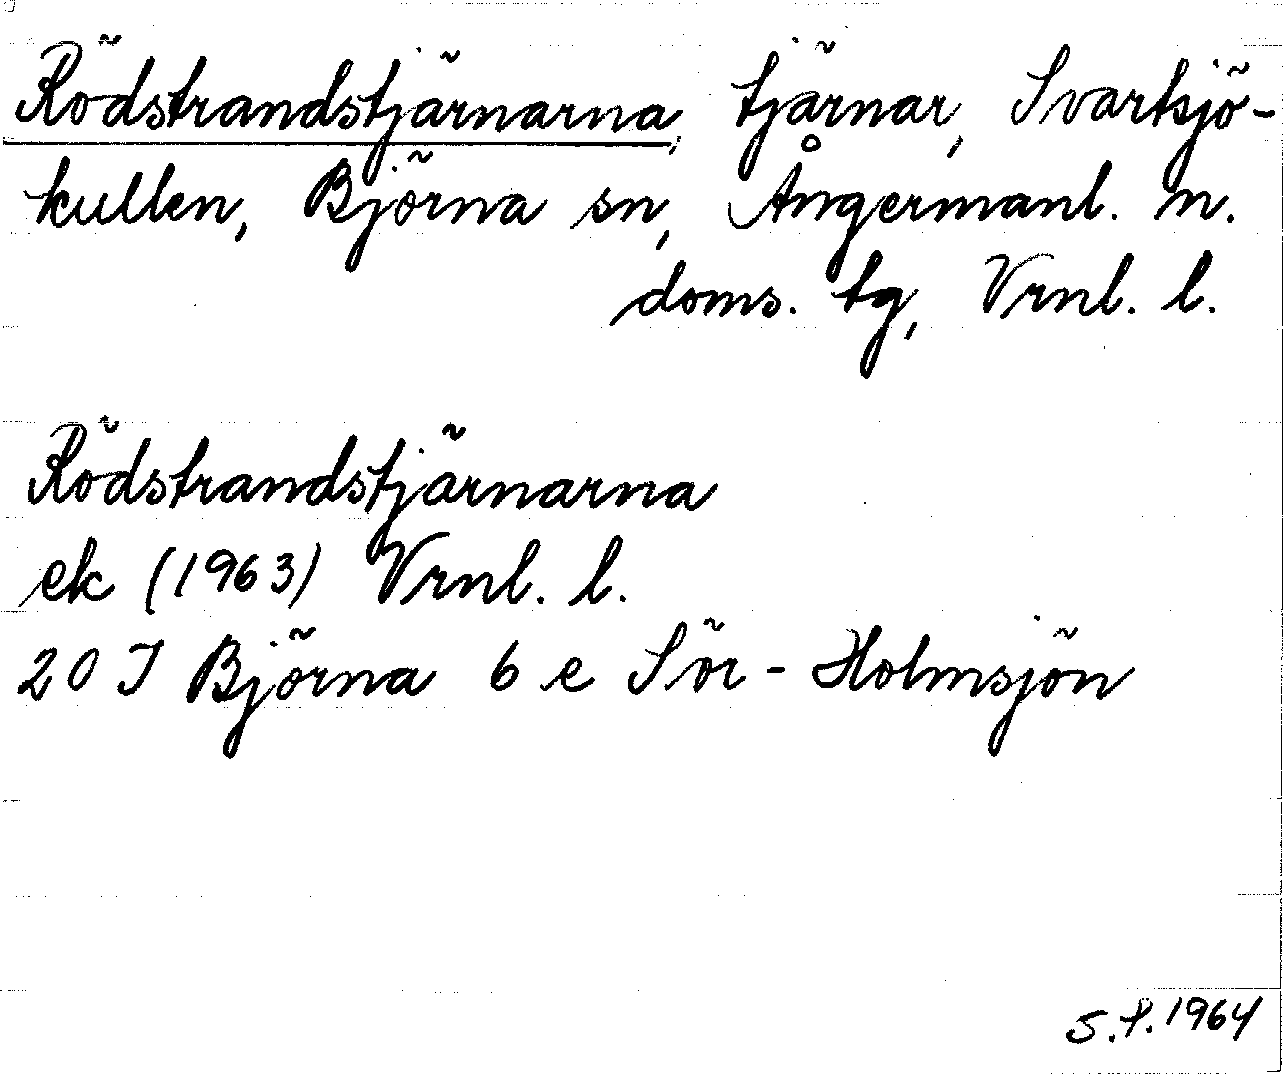 Rödstrandstjärnarna, tjärnar, Svartsjö-
kullen, Björna sn, Ångermanl. n.
doms. tg, Vrnl. l.
Rödstrandstjärnarna
ek (1963) Vrnl. l.
20 J Björna 6 e Sör-Holmsjön
S.S. 1964